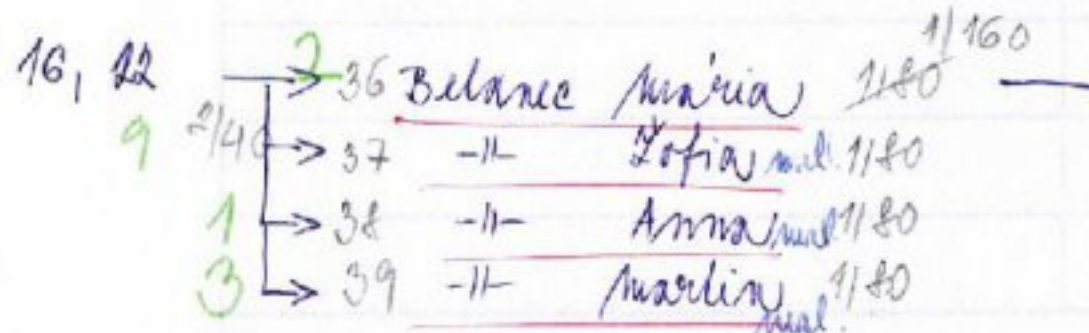 1/160
16, 22 2 36 Belanec Mária 1/80
9 2/40 37 -||- Žofia mal. 1/80
1 38 -||- Anna mal. 1/80
3 39 -||- Martin mal. 1/80